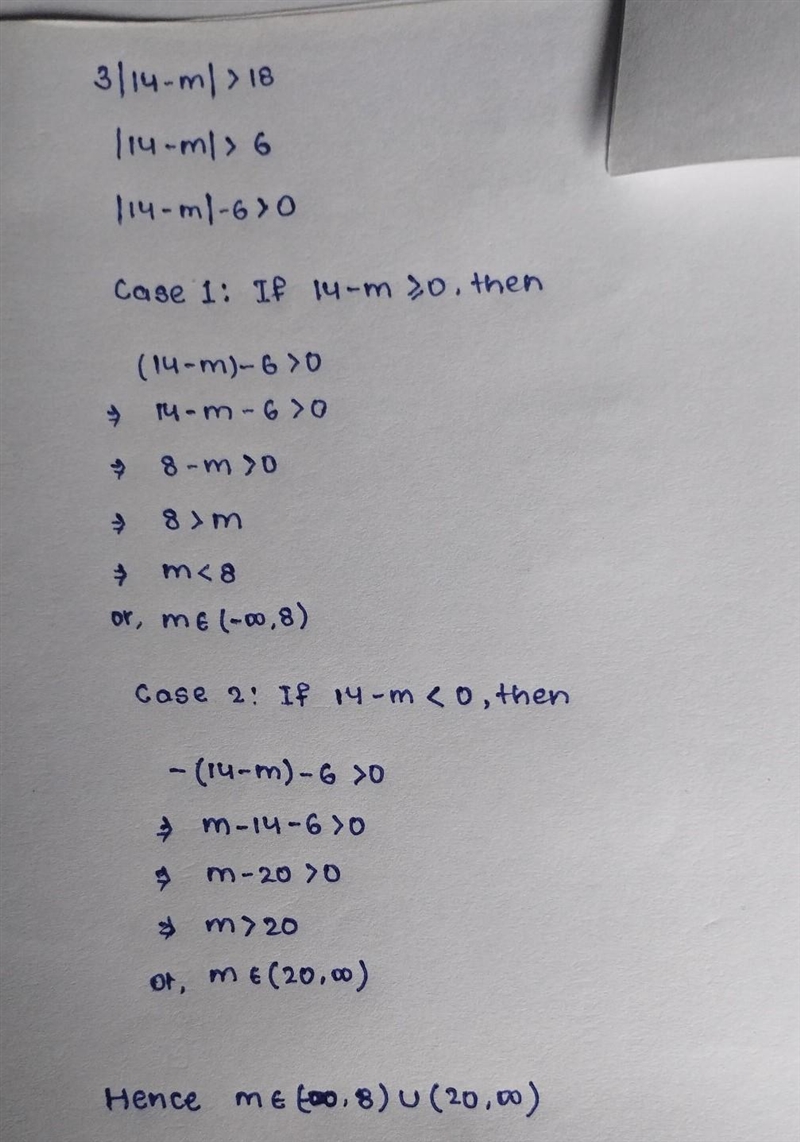 3|14-m| > 18
|14-m| > 6
|14-m|-6 > 0
Case 1: If 14-m ⩾ 0, then
(14-m)-6 > 0
⇒ 14-m-6 > 0
⇒ 8-m > 0
⇒ 8 > m
⇒ m < 8
or, m ∈ (-∞, 8)
Case 2: If 14-m < 0, then
-(14-m)-6 > 0
⇒ m-14-6 > 0
⇒ m-20 > 0
⇒ m > 20
or, m ∈ (20, ∞)
Hence m ∈ (-∞, 8) ∪ (20, ∞)